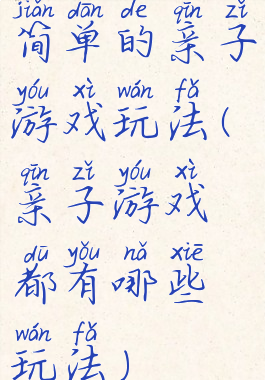 jiǎn dān de qīn zǐ
简单的亲子
yóu xì wán fǎ
游戏玩法(
qīn zǐ yóu xì
亲子游戏
dū yǒu nǎ xiē
都有哪些
wán fǎ
玩法)